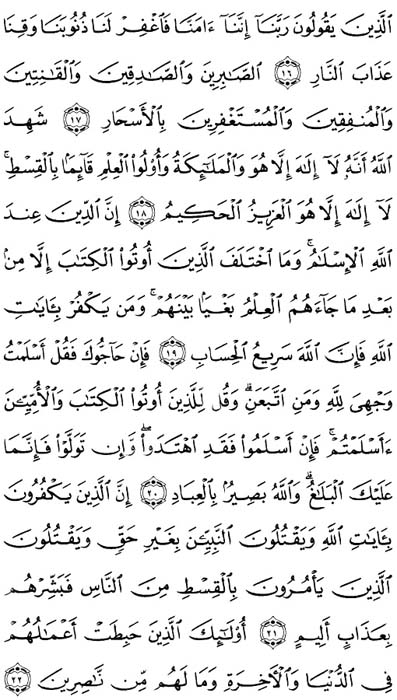 ٱلَّذِينَ يَقُولُونَ رَبَّنَآ إِنَّنَآ ءَامَنَّا فَٱغْفِرْ لَنَا ذُنُوبَنَا وَقِنَا
عَذَابَ ٱلنَّارِ ١٦ ٱلصَّٰبِرِينَ وَٱلصَّٰدِقِينَ وَٱلْقَٰنِتِينَ
وَٱلْمُنفِقِينَ وَٱلْمُسْتَغْفِرِينَ بِٱلْأَسْحَارِ ١٧ شَهِدَ
ٱللَّهُ أَنَّهُۥ لَآ إِلَٰهَ إِلَّا هُوَ وَٱلْمَلَٰٓئِكَةُ وَأُو۟لُوا۟ ٱلْعِلْمِ قَآئِمًۢا بِٱلْقِسْطِ ۚ
لَآ إِلَٰهَ إِلَّا هُوَ ٱلْعَزِيزُ ٱلْحَكِيمُ ١٨ إِنَّ ٱلدِّينَ عِندَ
ٱللَّهِ ٱلْإِسْلَٰمُ ۗ وَمَا ٱخْتَلَفَ ٱلَّذِينَ أُوتُوا۟ ٱلْكِتَٰبَ إِلَّا مِنۢ
بَعْدِ مَا جَآءَهُمُ ٱلْعِلْمُ بَغْيًۢا بَيْنَهُمْ ۗ وَمَن يَكْفُرْ بِـَٔايَٰتِ
ٱللَّهِ فَإِنَّ ٱللَّهَ سَرِيعُ ٱلْحِسَابِ ١٩ فَإِنْ حَآجُّوكَ فَقُلْ أَسْلَمْتُ
وَجْهِىَ لِلَّهِ وَمَنِ ٱتَّبَعَنِ ۗ وَقُل لِّلَّذِينَ أُوتُوا۟ ٱلْكِتَٰبَ وَٱلْأُمِّيِّـۧنَ
ءَأَسْلَمْتُمْ ۚ فَإِنْ أَسْلَمُوا۟ فَقَدِ ٱهْتَدَوا۟ ۖ وَّإِن تَوَلَّوْا۟ فَإِنَّمَا
عَلَيْكَ ٱلْبَلَٰغُ ۗ وَٱللَّهُ بَصِيرٌۢ بِٱلْعِبَادِ ٢٠ إِنَّ ٱلَّذِينَ يَكْفُرُونَ
بِـَٔايَٰتِ ٱللَّهِ وَيَقْتُلُونَ ٱلنَّبِيِّـۧنَ بِغَيْرِ حَقٍّ وَيَقْتُلُونَ
ٱلَّذِينَ يَأْمُرُونَ بِٱلْقِسْطِ مِنَ ٱلنَّاسِ فَبَشِّرْهُم
بِعَذَابٍ أَلِيمٍ ٢١ أُو۟لَٰٓئِكَ ٱلَّذِينَ حَبِطَتْ أَعْمَٰلُهُمْ
فِى ٱلدُّنْيَا وَٱلْءَاخِرَةِ وَمَا لَهُم مِّن نَّٰصِرِينَ ٢٢